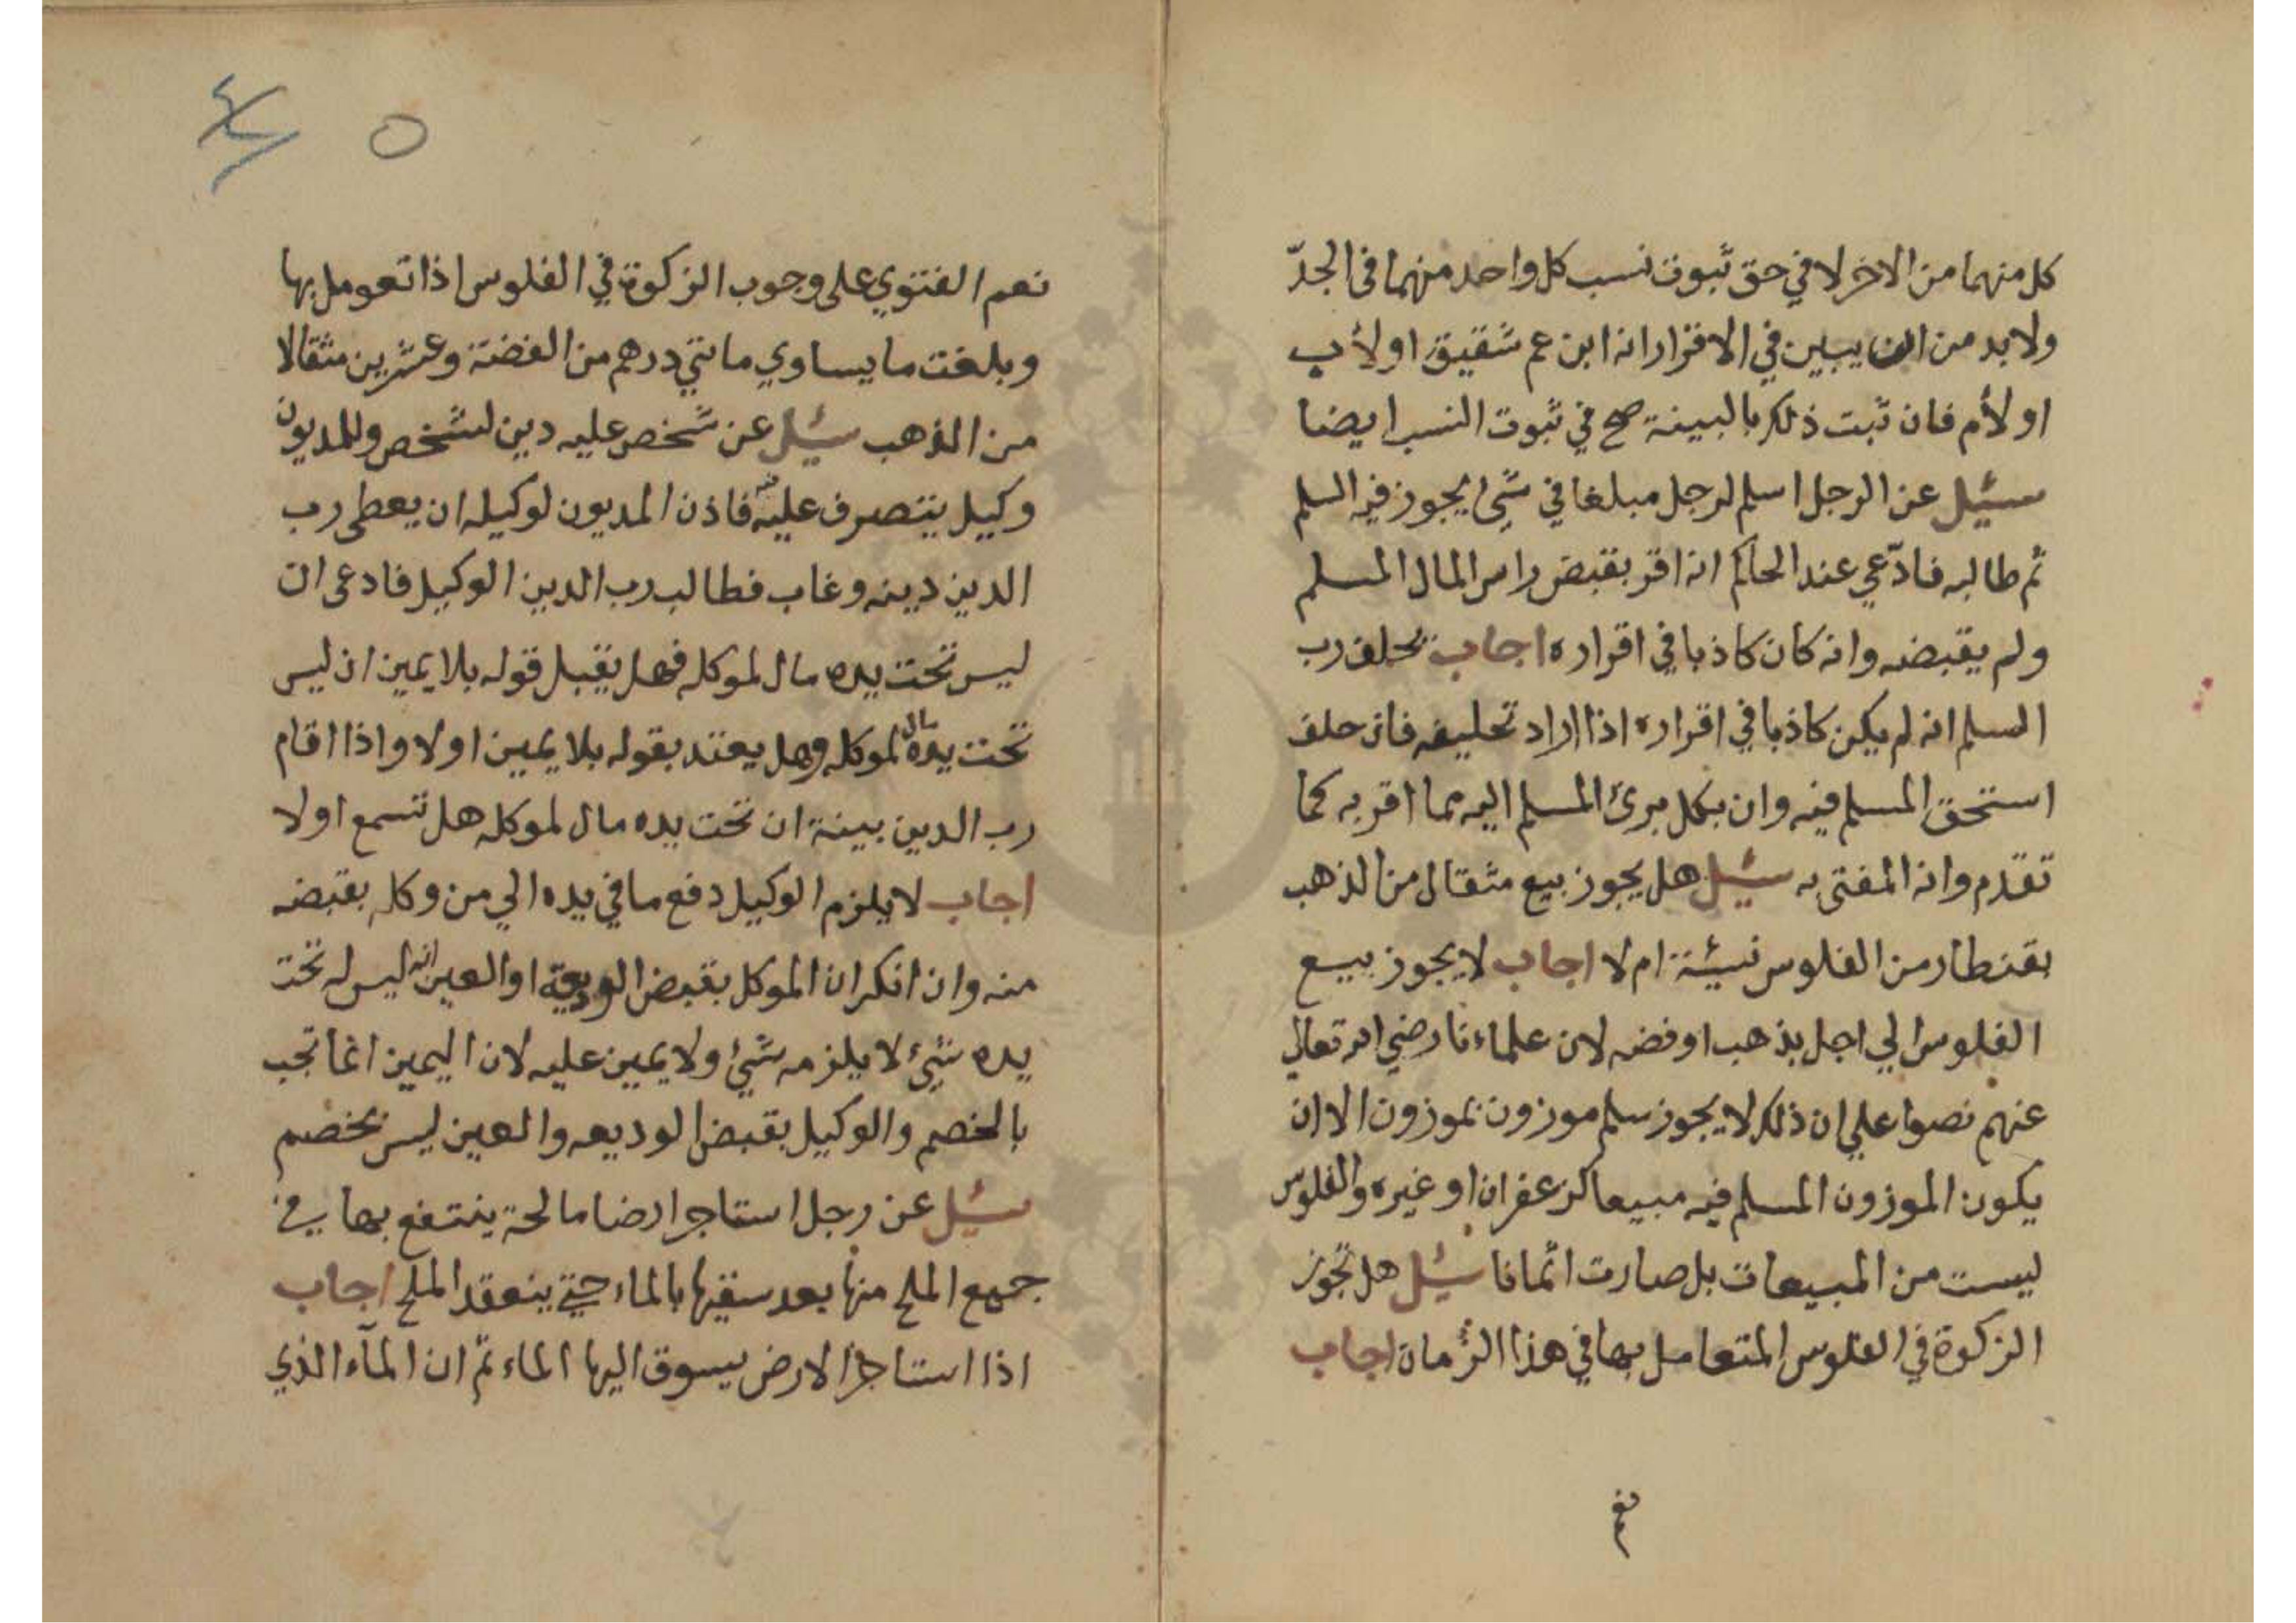 كل منهما من الاخر لا في حق ثبوت نسب كل واحد منهما فى الجدّ
ولابد من ان يبين في الاقرار انه ابن عم شقيق او لأب
او لأم فان ثبت ذلك بالبينة صح في ثبوت النسب ايضا
سئيل عن الرجل اسلم لرجل مبلغا في شئ يجوز فيه السلم
ثم طالبه فادّعي عند الحاكم انه اقر بقبض راس المال المسلم
ولم يقبضه وانه كان كاذبا في اقراره اجاب يحلف رب
السلم انه لم يكن كاذبا في اقراره اذا اراد تحليفه فان حلف
استحق المسلم فيه وان نكل برئ المسلم اليه مما اقر به كما
تقدم وانه المفتى به سئيل هل يجوز بيع مثقال من الذهب
بقنطار من الفلوس نسيئة ام لا اجاب لا يجوز بيع
الفلوس الي اجل بذهب او فضه لان علماءنا رضي الله تعالي
عنهم نصوا علي ان ذلك لا يجوز سلم موزون بموزون الا ان
يكون الموزون المسلم فيه مبيعا كزعفران او غيره والفلوس
ليست من المبيعات بل صارت اثمانا سئيل هل تجوز
الزكوة في الفلوس المتعامل بها في هذا الزمان اجاب
نعم
٥
نعم الفتوي على وجوب الزكوة في الفلوس اذا تعومل بها
وبلغت ما يساوي مائتي درهم من الفضة وعشرين مثقالا
من الذهب سئيل عن شخص عليه دين لشخص وللمديون
وكيل يتصرف عليه فاذن المديون لوكيله ان يعطى رب
الدين دينه وغاب فطالب رب الدين الوكيل فادعى ان
ليس تحت يده مال لموكله فهل يقبل قوله بلا يمين ان ليس
تحت يده مال لموكله وهل يعتد بقوله بلا يمين اولا واذا اقام
رب الدين بينة ان تحت يده مال لموكله هل تسمع اولا
اجاب لا يلزم الوكيل دفع ما في يده الي من وكله بقبضه
منه وان انكر ان الموكل بقبض الوديعة او العين انه ليس له تحت
يده شئ لا يلزمه شئ ولا يمين عليه لان اليمين انما تجب
بالخصم والوكيل بقبض الوديعه والعين ليس بخصم
سئيل عن رجل استاجر ارضا مالحة ينتفع بها في
جميع الملح منها بعد سقيها بالماء حتي ينعقد الملح اجاب
اذا استاجر الارض يسوق اليها الماء ثم ان المآء الذي